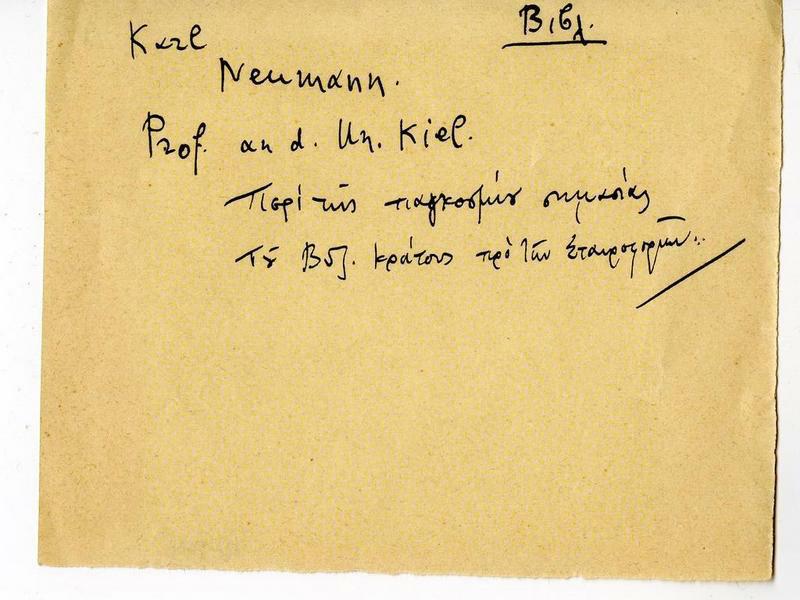 Βιβλ.
Karl
Neumann.
Prof. an d. Un. Kiel.
Περὶ τῆς παγκοσμίου σημασίας
τοῦ Βυζ. κράτους πρὸ τῶν Σταυροφοριῶν..